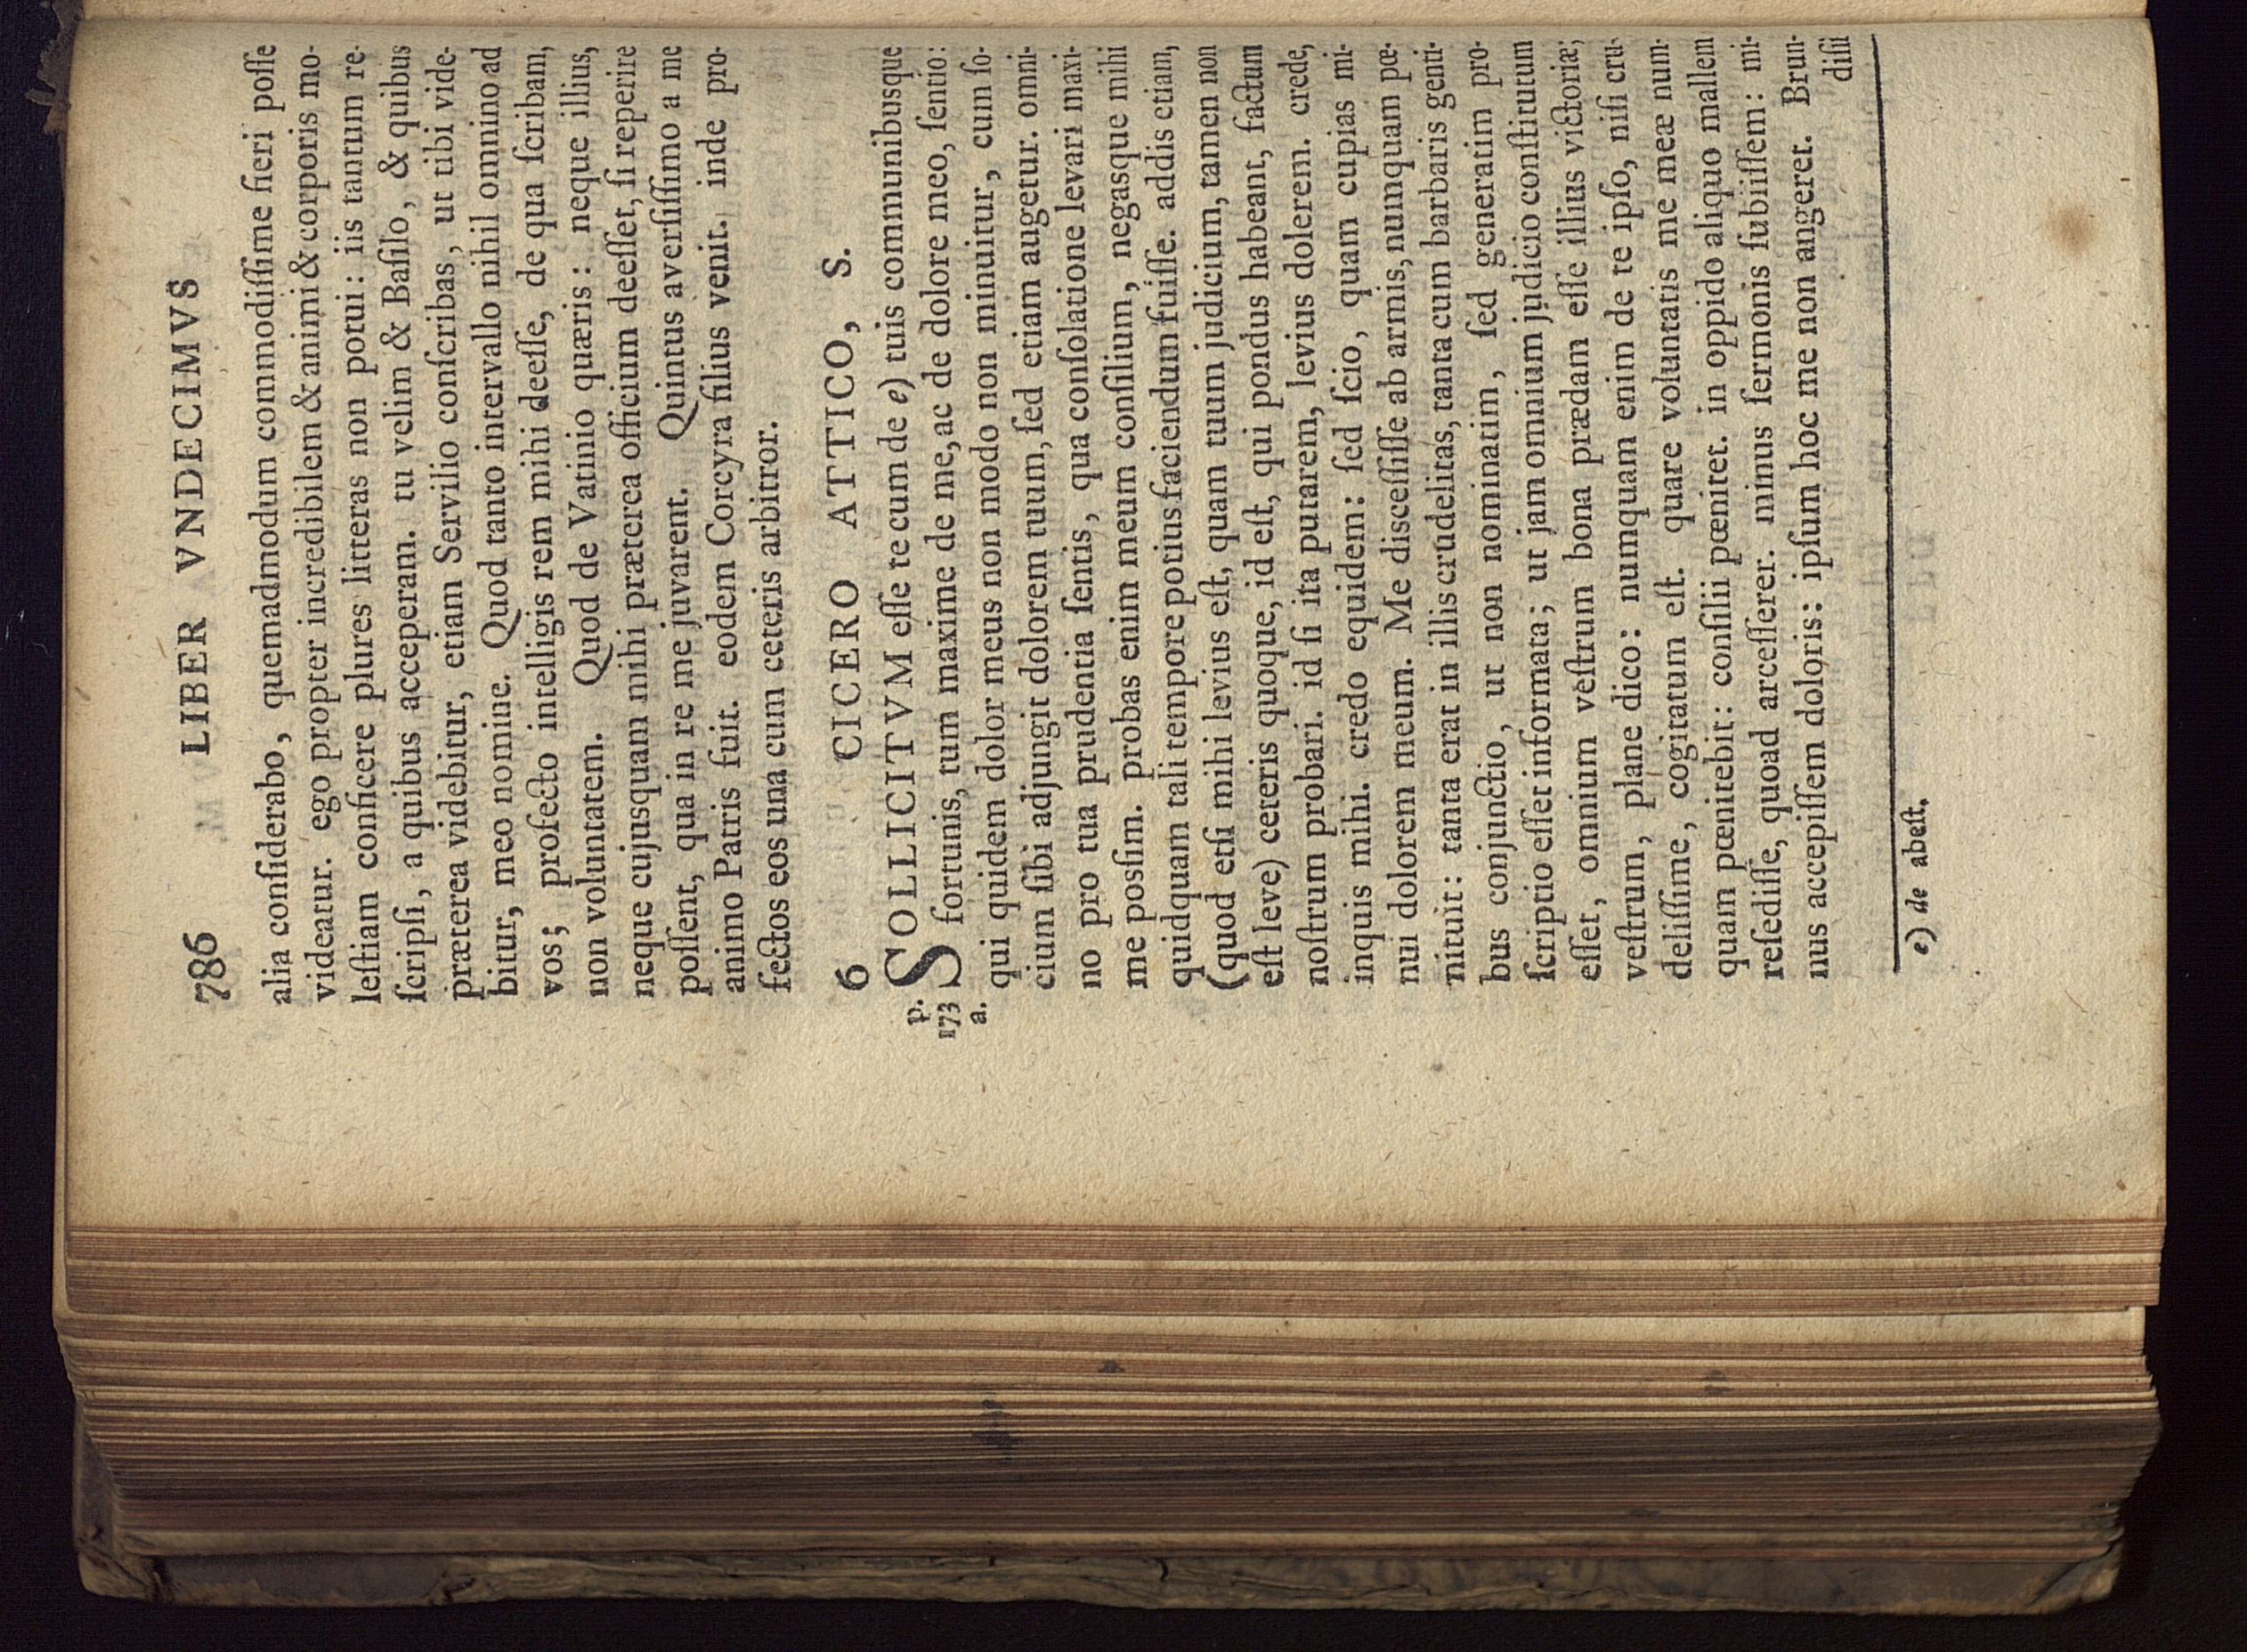 786 LIBER VNDECIMVS
alia conſiderabo, quemadmodum commodiſſime fieri poſſe
videatur. ego propter incredibilem & animi & corporis mo-
leſtiam conficere plures litteras non potui: iis tantum re-
ſcripſi, a quibus acceperam. tu velim & Baſilo, & quibus
præterea videbitur, etiam Servilio conſcribas, ut tibi vide-
bitur, meo nomine. Quod tanto intervallo nihil omnino ad
vos; profecto intelligis rem mihi deeſſe, de qua ſcribam,
non voluntatem. Quod de Vatinio quæris: neque illius,
neque cujusquam mihi præterea officium deeſſet, ſi reperire
poſſent, qua in re me juvarent. Quintus averſiſſimo a me
animo Patris fuit. eodem Corcyra filius venit. inde pro-
fectos eos una cum ceteris arbitror.
6 CICERO ATTICO, S.
p.
173
a.
SOLLICITVM eſſe te cum de e) tuis communibusque
fortunis, tum maxime de me, ac de dolore meo, ſentio:
qui quidem dolor meus non modo non minuitur, cum ſo-
cium ſibi adjungit dolorem tuum, ſed etiam augetur. omni-
no pro tua prudentia ſentis, qua conſolatione levari maxi-
me posſim. probas enim meum conſilium, negasque mihi
quidquam tali tempore potius faciendum fuiſſe. addis etiam,
(quod etſi mihi levius eſt, quam tuum judicium, tamen non
eſt leve) ceteris quoque, id eſt, qui pondus habeant, factum
noſtrum probari. id ſi ita putarem, levius dolerem. crede,
inquis mihi. credo equidem: ſed ſcio, quam cupias mi-
nui dolorem meum. Me disceſſiſſe ab armis, numquam pœ-
nituit: tanta erat in illis crudelitas, tanta cum barbaris genti-
bus conjunctio, ut non nominatim, ſed generatim pro-
ſcriptio eſſet informata; ut jam omnium judicio conſtitutum
eſſet, omnium veſtrum bona prædam eſſe illius victoriæ;
veſtrum, plane dico: numquam enim de te ipſo, niſi cru-
deliſſime, cogitatum eſt. quare voluntatis me meæ num-
quam pœnitebit: conſilii pœnitet. in oppido aliquo mallem
reſediſſe, quoad arceſſerer. minus ſermonis ſubiiſſem: mi-
nus accepiſſem doloris: ipſum hoc me non angeret. Brun-
diſii
e) de abeſt,